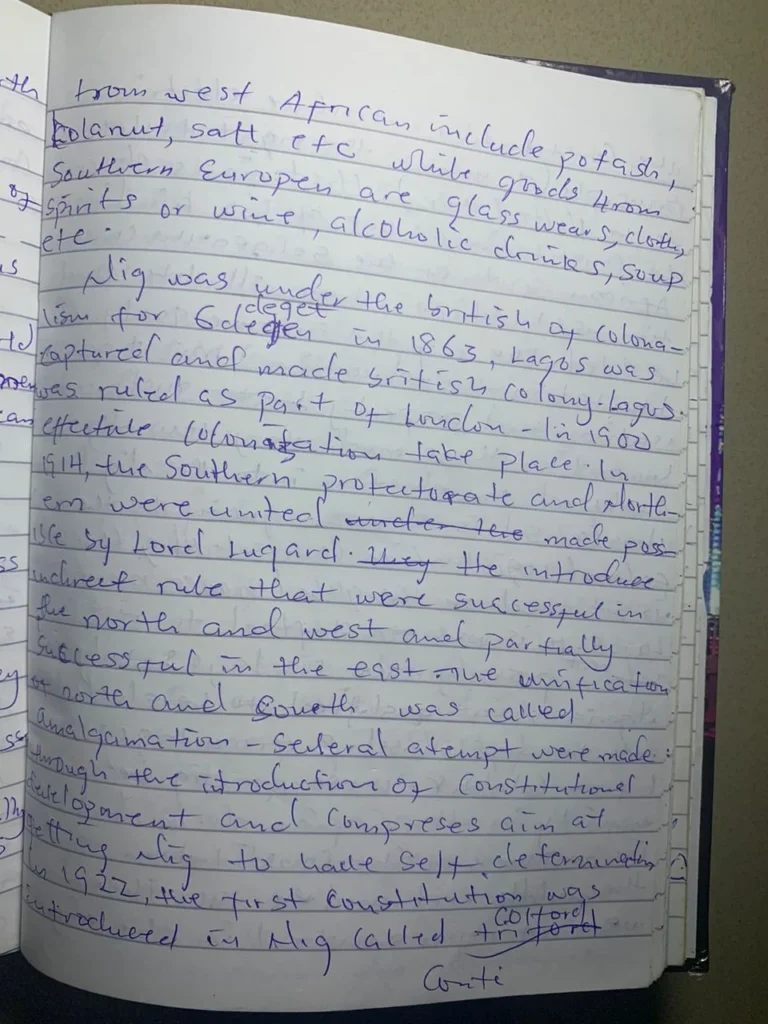 from west African include potash,
kolanut, salt etc while goods from
Southern Europen are glass wears, cloth,
spirits or wine, alcoholic drinks, soup
etc.
Nig was under the british of colona-
lism for 6 deget in 1863, Lagos was
captured and made british colony. Lagos
was ruled as part of London - In 1900
effective Colonisation take place. In
1914, the Southern protectorate and North-
ern were united under the made pos-
ible by Lord Lugard. They the introduce
indirect rule that were successful in
the north and west and partially
Successful in the east. The unification
of north and South was called
amalgamation - Several atempt were made
through the introduction of Constitutional
development and Compreses aim at
getting Nig to have Self determination
In 1922, the first Constitution was
introduced in Nig called Colford
Conti